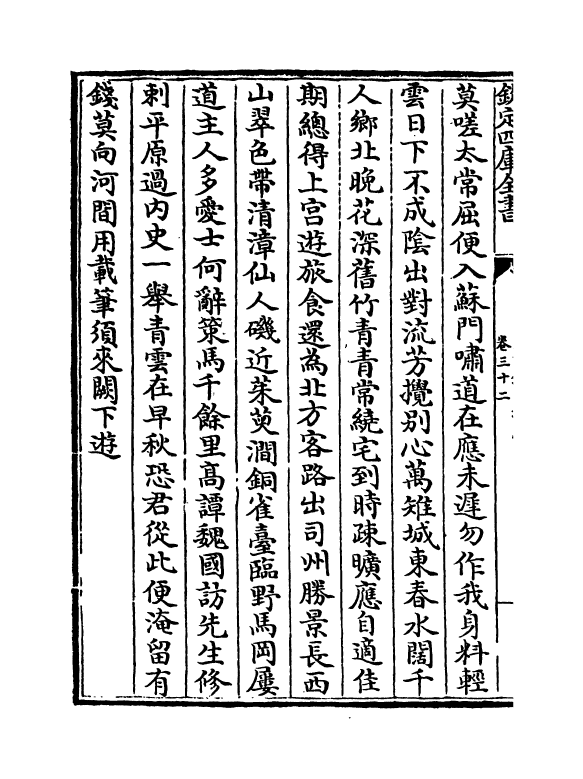 欽定四庫全書
卷三十二
莫嗟太常屈便入蘇門嘯道在應未遲勿作我身料輕
雲日下不成陰出對流芳攪别心萬雉城東春水闊千
人鄉北晚花深舊竹青青常繞宅到時疎曠應自適佳
期總得上宫遊旅食還為北方客路出司州勝景長西
山翠色帶清漳仙人磯近茱萸澗銅雀臺臨野馬岡屢
道主人多愛士何辭策馬千餘里高譚魏國訪先生修
刺平原過内史一舉青雲在早秋恐君從此便淹留有
錢莫向河間用載筆須來闕下遊